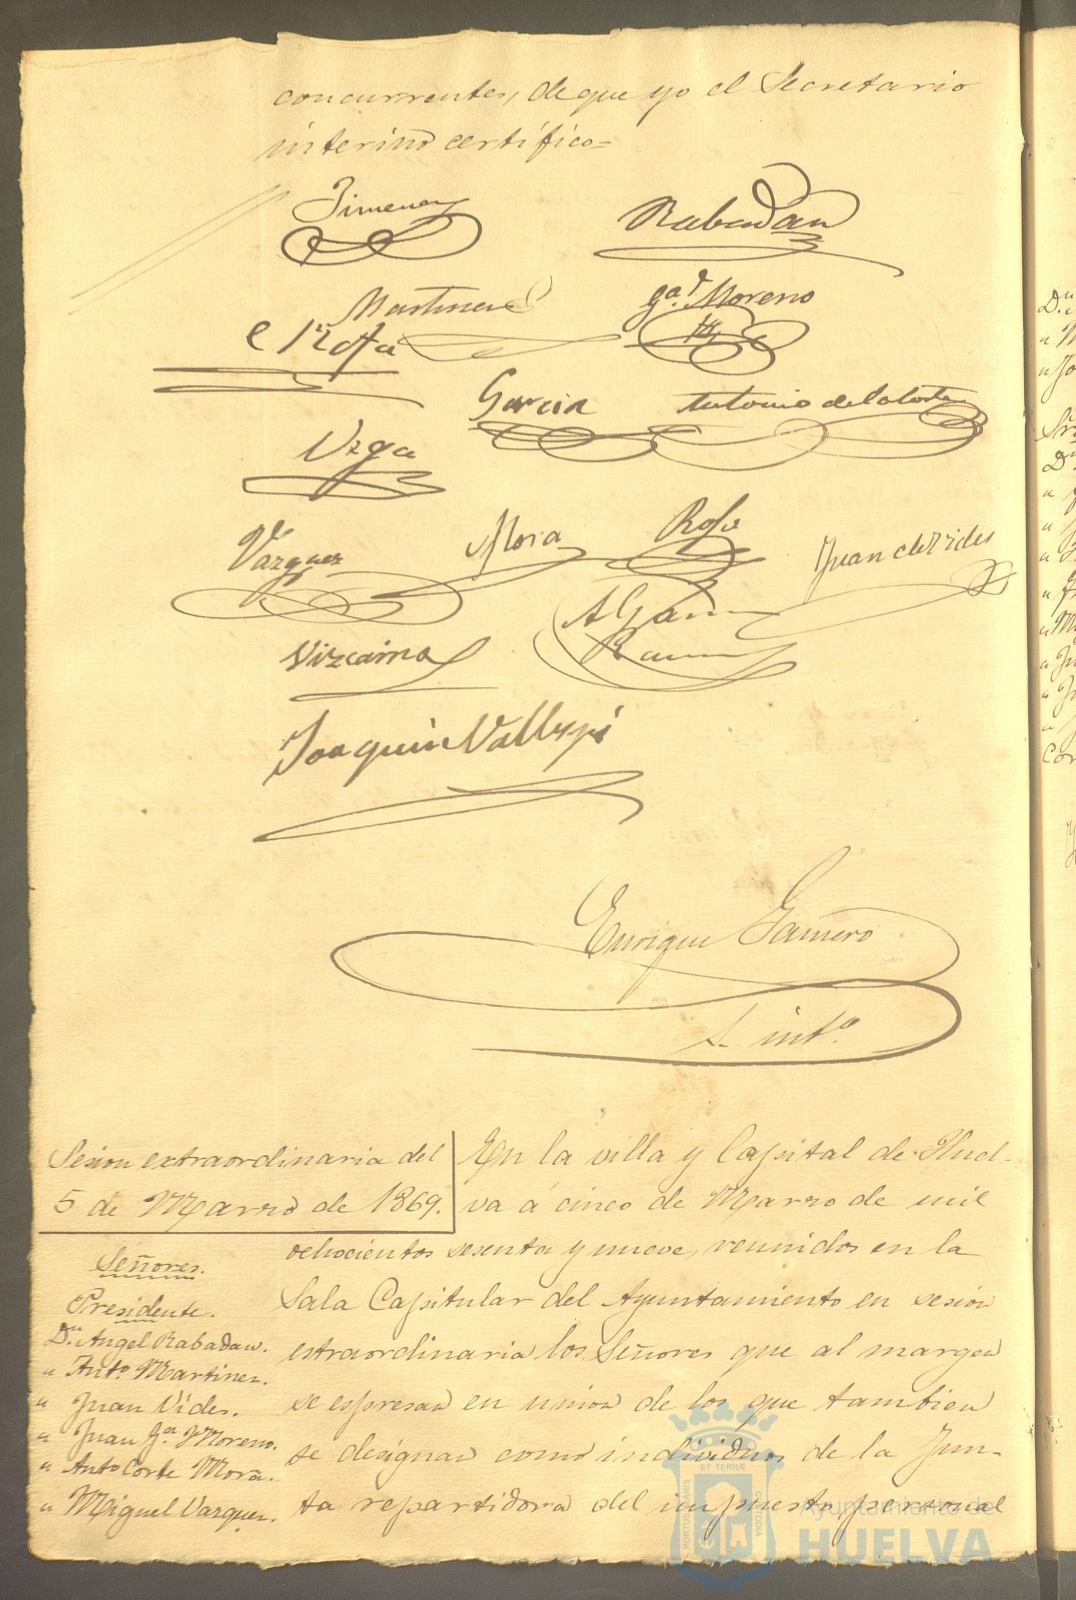 concurrentes, de que yo el Secretario
interino certifico=
Jimenez
Rabadan
Martinez
Ga. Moreno
Garcia
Antonio de la Corte
Vega
Vazquez
Mora
Juan de Vides
Vizcaino
Joaquin Vallejo
Enrique Gamero
S. into.
Sesion extraordinaria del
5 de Marzo de 1869.
Señores.
Presidente.
Dn. Angel Rabadan.
" Anto. Martinez.
" Juan Vides.
" Juan Ga. Moreno.
" Anto Corte Mora.
" Miguel Vazquez.
En la villa y Capital de Huel-
va á cinco de Marzo de mil
ochocientos sesenta y nueve, reunidos en la
Sala Capitular del Ayuntamiento en sesion
estraordinaria los Señores que al margen
se espresan en union de los que tambien
se designan como individuos de la Jun-
ta repartidora del impuesto personal
PORTUS MARIS ET TERRÆ CUSTODIA
Ayuntamiento de
HUELVA